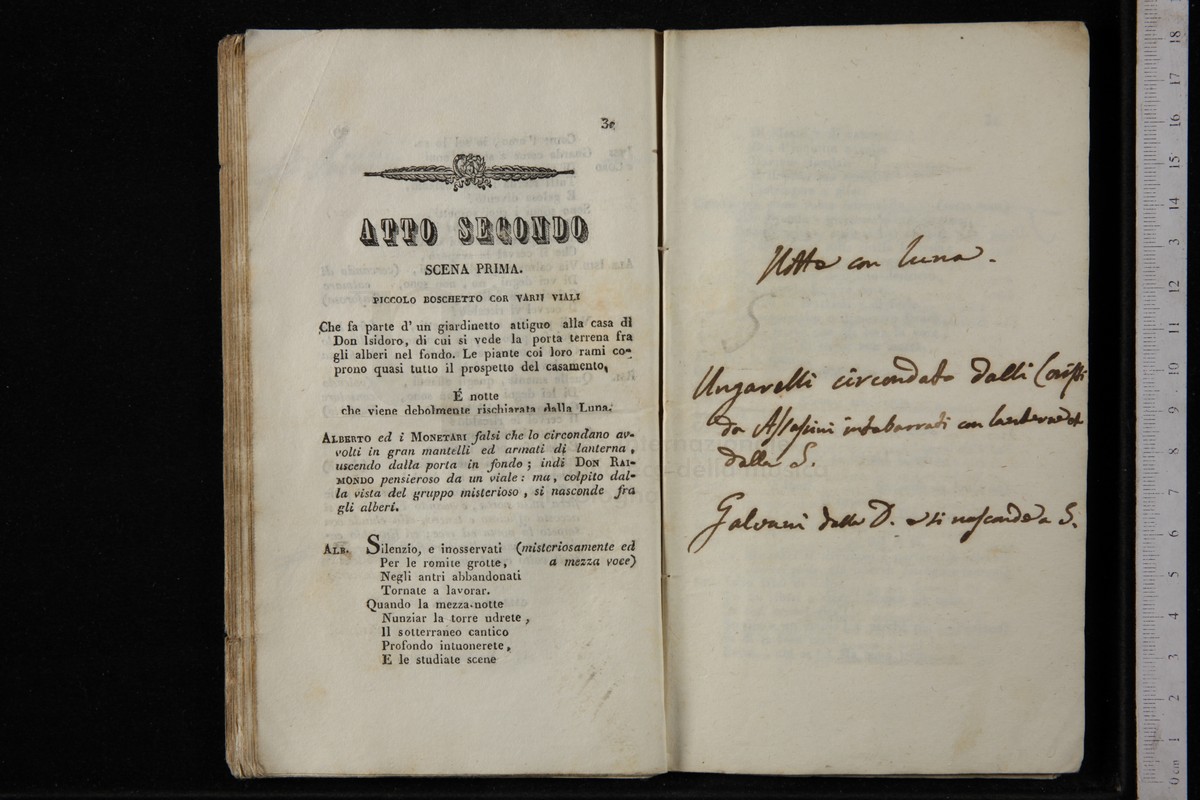 3
ATTO SECONDO
SCENA PRIMA.
PICCOLO BOSCHETTO COR VARIJ VIALI
Che fa parte d' un giardinetto attiguo alla casa di
Don Isidoro, di cui si vede la porta terrena fra
gli alberi nel fondo. Le piante coi loro rami co-
prono quasi tutto il prospetto del casamento,
É notte
che viene debolmente rischiarata dalla Luna.
ALBERTO ed i MONETARI falsi che lo circondano av-
volti in gran mantelli ed armati di lanterna,
uscendo dalla porta in fondo; indi DON RAI-
MONDO pensieroso da un viale: ma, colpito dal-
la vista del gruppo misterioso, si nasconde fra
gli alberi.
ALB. Silenzio, e inosservati (misteriosamente ed
Per le romite grotte, a mezza voce)
Negli antri abbandonati
Tornate a lavorar.
Quando la mezza-notte
Nunziar la torre udrete,
Il sotterraneo cantico
Profondo intuonerete,
E le studiate scene
Notte con luna.
S
Ungarelli circondato dalli Coristi
da Assassini intabarrati con
dalla S.
Galvani dalla D. e si nasconde a S.
0 cm 1 2 3 4 5 6 7 8 9 10 11 12 13 14 15 16 17 18